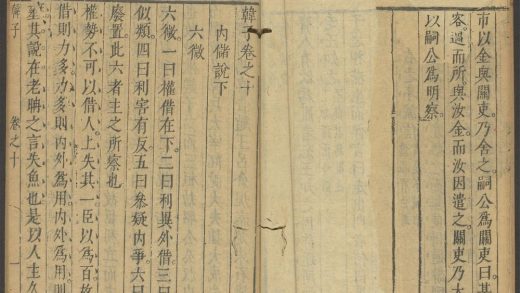 市以金與關吏乃舍之嗣公爲關吏曰
客過而所與汝金而汝因遣之關吏乃大
以嗣公爲明察
韓子卷之十
內儲說下
六微
六微一曰權借在下二曰利異外借三曰
似類四曰利害有反五曰參疑內爭六曰
廢置此六者主之所察也
權勢不可以借人上失其一臣以爲百故
借則力多力多則內外爲用內外爲用則
其說在老聃之言失魚也是以人主久
韓子 卷之十 一